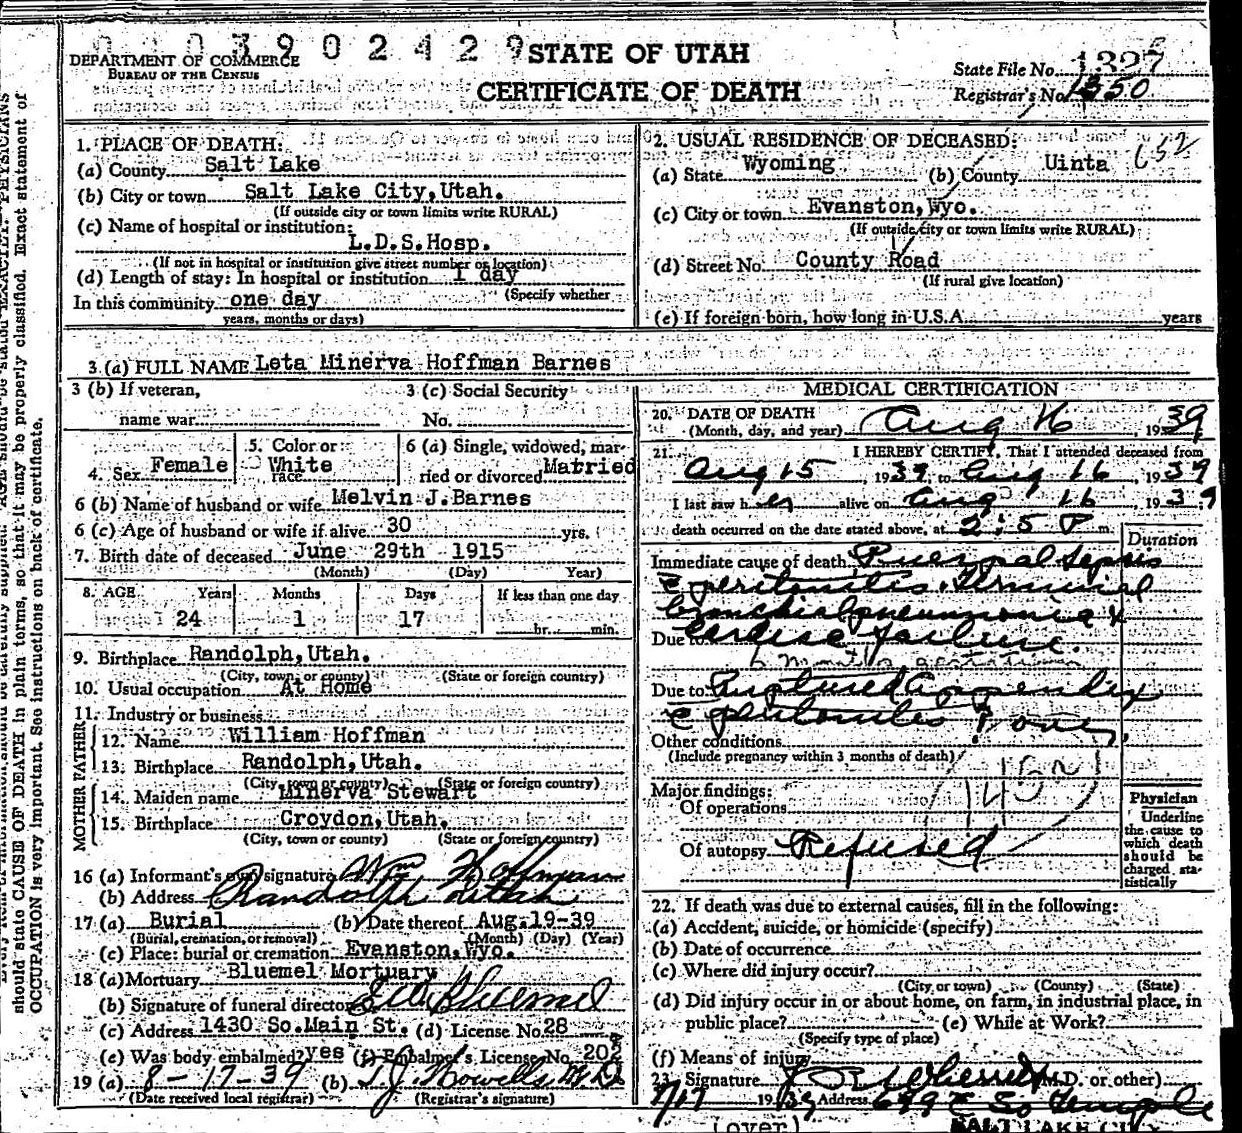 0 1 0 3 9 0 2 4 2 9
DEPARTMENT OF COMMERCE
BUREAU OF THE CENSUS
STATE OF UTAH
CERTIFICATE OF DEATH
State File No. 1327
Registrar's No. 1350
1. PLACE OF DEATH:
(a) County Salt Lake
(b) City or town Salt Lake City, Utah.
(If outside city or town limits write RURAL)
(c) Name of hospital or institution:
L.D.S. Hosp.
(If not in hospital or institution give street number or location)
(d) Length of stay: In hospital or institution 1 day
(Specify whether
In this community one day
years, months or days)
2. USUAL RESIDENCE OF DECEASED: 652
(a) State Wyoming (b) County Uinta
(c) City or town Evanston, Wyo.
(If outside city or town limits write RURAL)
(d) Street No. County Road
(If rural give location)
(e) If foreign born, how long in U.S.A. years
3 (a) FULL NAME Leta Minerva Hoffman Barnes
3 (b) If veteran,
name war
3 (c) Social Security
No.
4. Sex Female
5. Color or race White
6 (a) Single, widowed, married or divorced Married
6 (b) Name of husband or wife Melvin J. Barnes
6 (c) Age of husband or wife if alive 30 yrs.
7. Birth date of deceased June 29th 1915
(Month) (Day) Year)
8. AGE Years Months Days If less than one day
24 1 17 hr. min.
9. Birthplace Randolph, Utah.
(City, town or county) (State or foreign country)
10. Usual occupation At Home
11. Industry or business
FATHER
12. Name William Hoffman
13. Birthplace Randolph, Utah.
(City, town or county) (State or foreign country)
MOTHER
14. Maiden name Minerva Stewart
15. Birthplace Croydon, Utah.
(City, town or county) (State or foreign country)
16 (a) Informant's own signature Wm Hoffman
(b) Address Randolph Utah
17 (a) Burial (b) Date thereof Aug. 19-39
(Burial, cremation, or removal) (Month) (Day) (Year)
(c) Place: burial or cremation Evanston, Wyo.
18 (a) Mortuary Bluemel Mortuary
(b) Signature of funeral director Bluemel
(c) Address 1430 So. Main St. (d) License No. 28
(e) Was body embalmed? yes (f) Embalmer's License No. 202
19 (a) 8-17-39 (b) T.J. Howells M.D.
(Date received local registrar) (Registrar's signature)
MEDICAL CERTIFICATION
20. DATE OF DEATH
(Month, day, and year) Aug 16, 1939
21. I HEREBY CERTIFY, That I attended deceased from
Aug 15 1939 to Aug 16, 1939
I last saw her alive on Aug 16 1939
death occurred on the date stated above, at 2:5 P m.
Duration
Immediate cause of death Puerperal Sepsis
c peritonitis. Terminal
bronchial pneumonia &
Due to Cardiac failure.
6 months gestation
Due to Ruptured Appendix
c peritonitis
Other conditions
(Include pregnancy within 3 months of death)
Major findings:
Of operations
Of autopsy Refused
Physician
Underline
the cause to
which death
should be
charged sta-
tistically
22. If death was due to external causes, fill in the following:
(a) Accident, suicide, or homicide (specify)
(b) Date of occurrence
(c) Where did injury occur?
(City or town) (County) (State)
(d) Did injury occur in or about home, on farm, in industrial place, in
public place? (e) While at Work?
(Specify type of place)
(f) Means of injury
23. Signature (M.D. or other)
1939 Address 699 E So Temple
(over) SALT LAKE CITY
should state CAUSE OF DEATH in plain terms, so that it may be properly classified. Exact statement of
OCCUPATION is very important. See instructions on back of certificate.